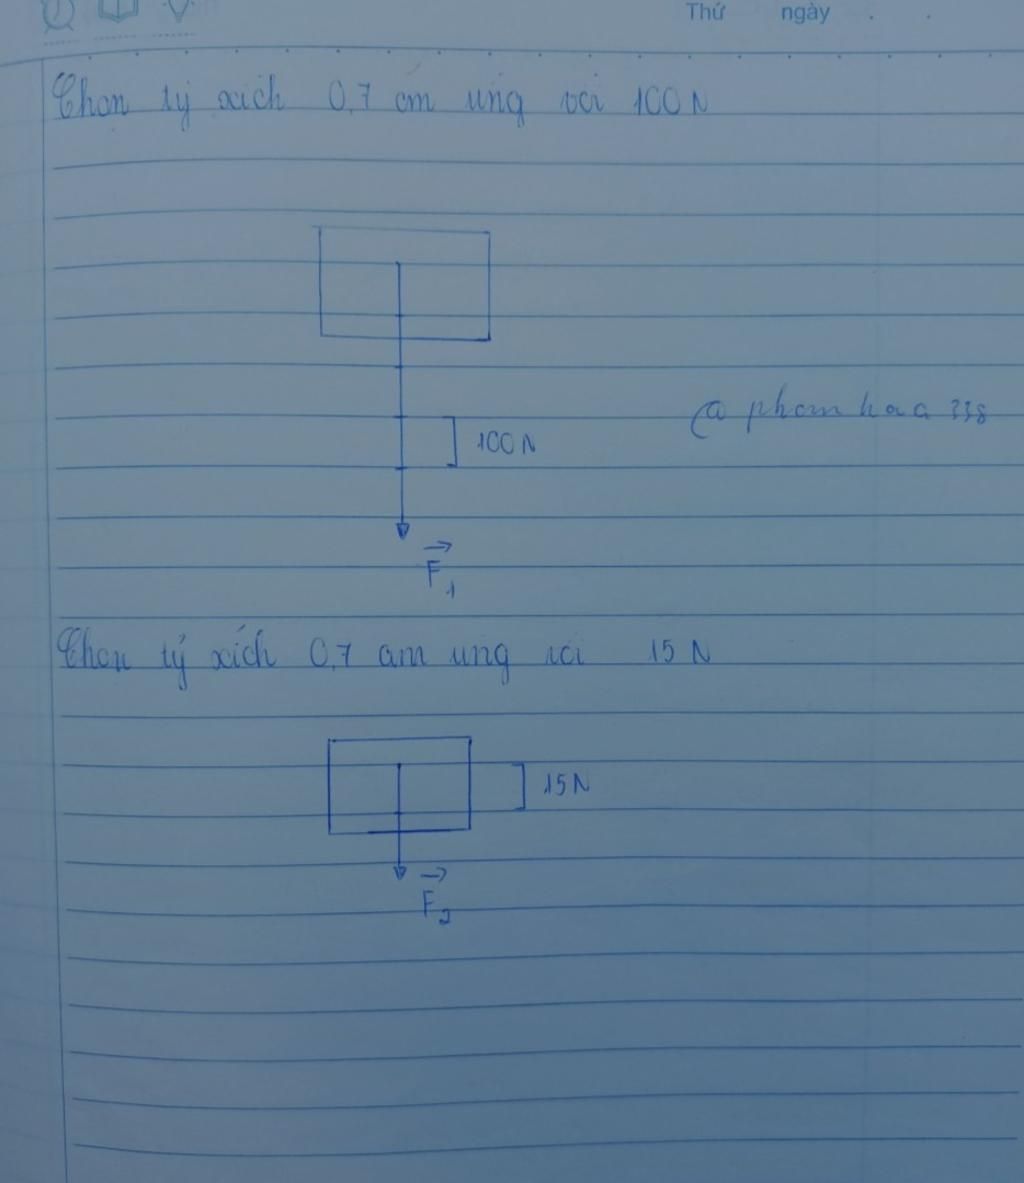 Thứ ngày
Chọn tỷ xích 0,7 cm ứng với 100 N
100 N
@ phamhoa 338
F₁
Chọn tỷ xích 0,7 cm ứng với 15 N
15 N
F₂